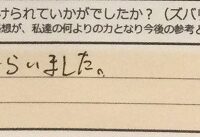 けられていかがでしたか？（ズバリ
想が、私達の何よりの力となり今後の参考と
らいました。